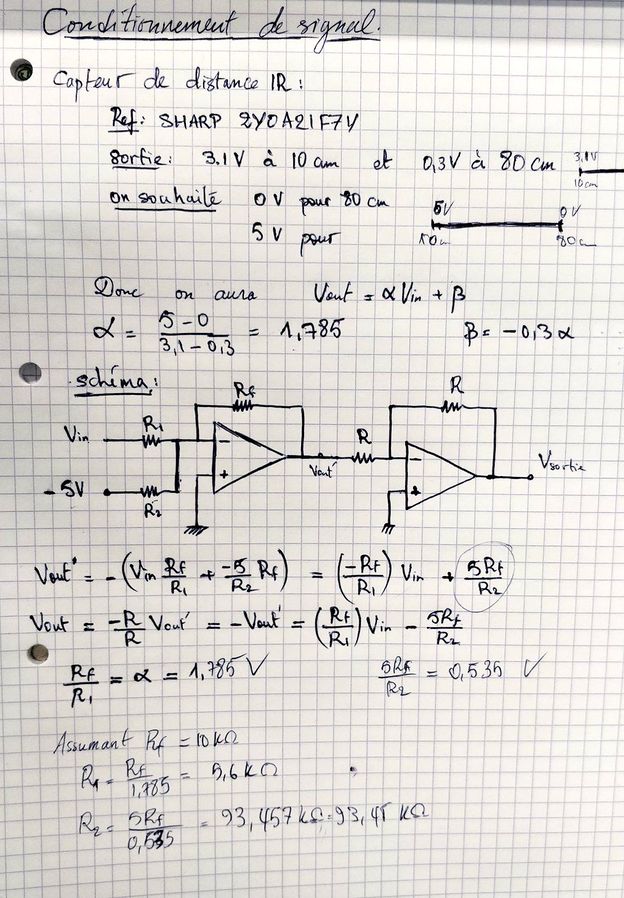 Conditionnement de signal.
Capteur de distance IR :
Ref : SHARP 2Y0A21F7Y
Sortie : 3.1V à 10 cm et 0,3V à 80 cm
3.1V
10cm
on souhaite 0V pour 80 cm
5V pour
5V 0V
10cm 80cm
Donc on aura Vout = α Vin + β
α = (5 - 0)/(3,1 - 0,3) = 1,785 β = -0,3 α
schéma :
Rf
R
Vin R1
R
Vout' Vsortie
-5V R2
- + - +
Vout' = -(Vin Rf/R1 + -5/R2 Rf) = (-Rf/R1) Vin + 5Rf/R2
Vout = -R/R Vout' = -Vout' = (Rf/R1) Vin - 5Rf/R2
Rf/R1 = α = 1,785 V 5Rf/R2 = 0,535 V
Assumant Rf = 10 kΩ
R1 = Rf/1,785 = 5,6 kΩ
R2 = 5Rf/0,535 = 93,457 kΩ = 93,45 kΩ